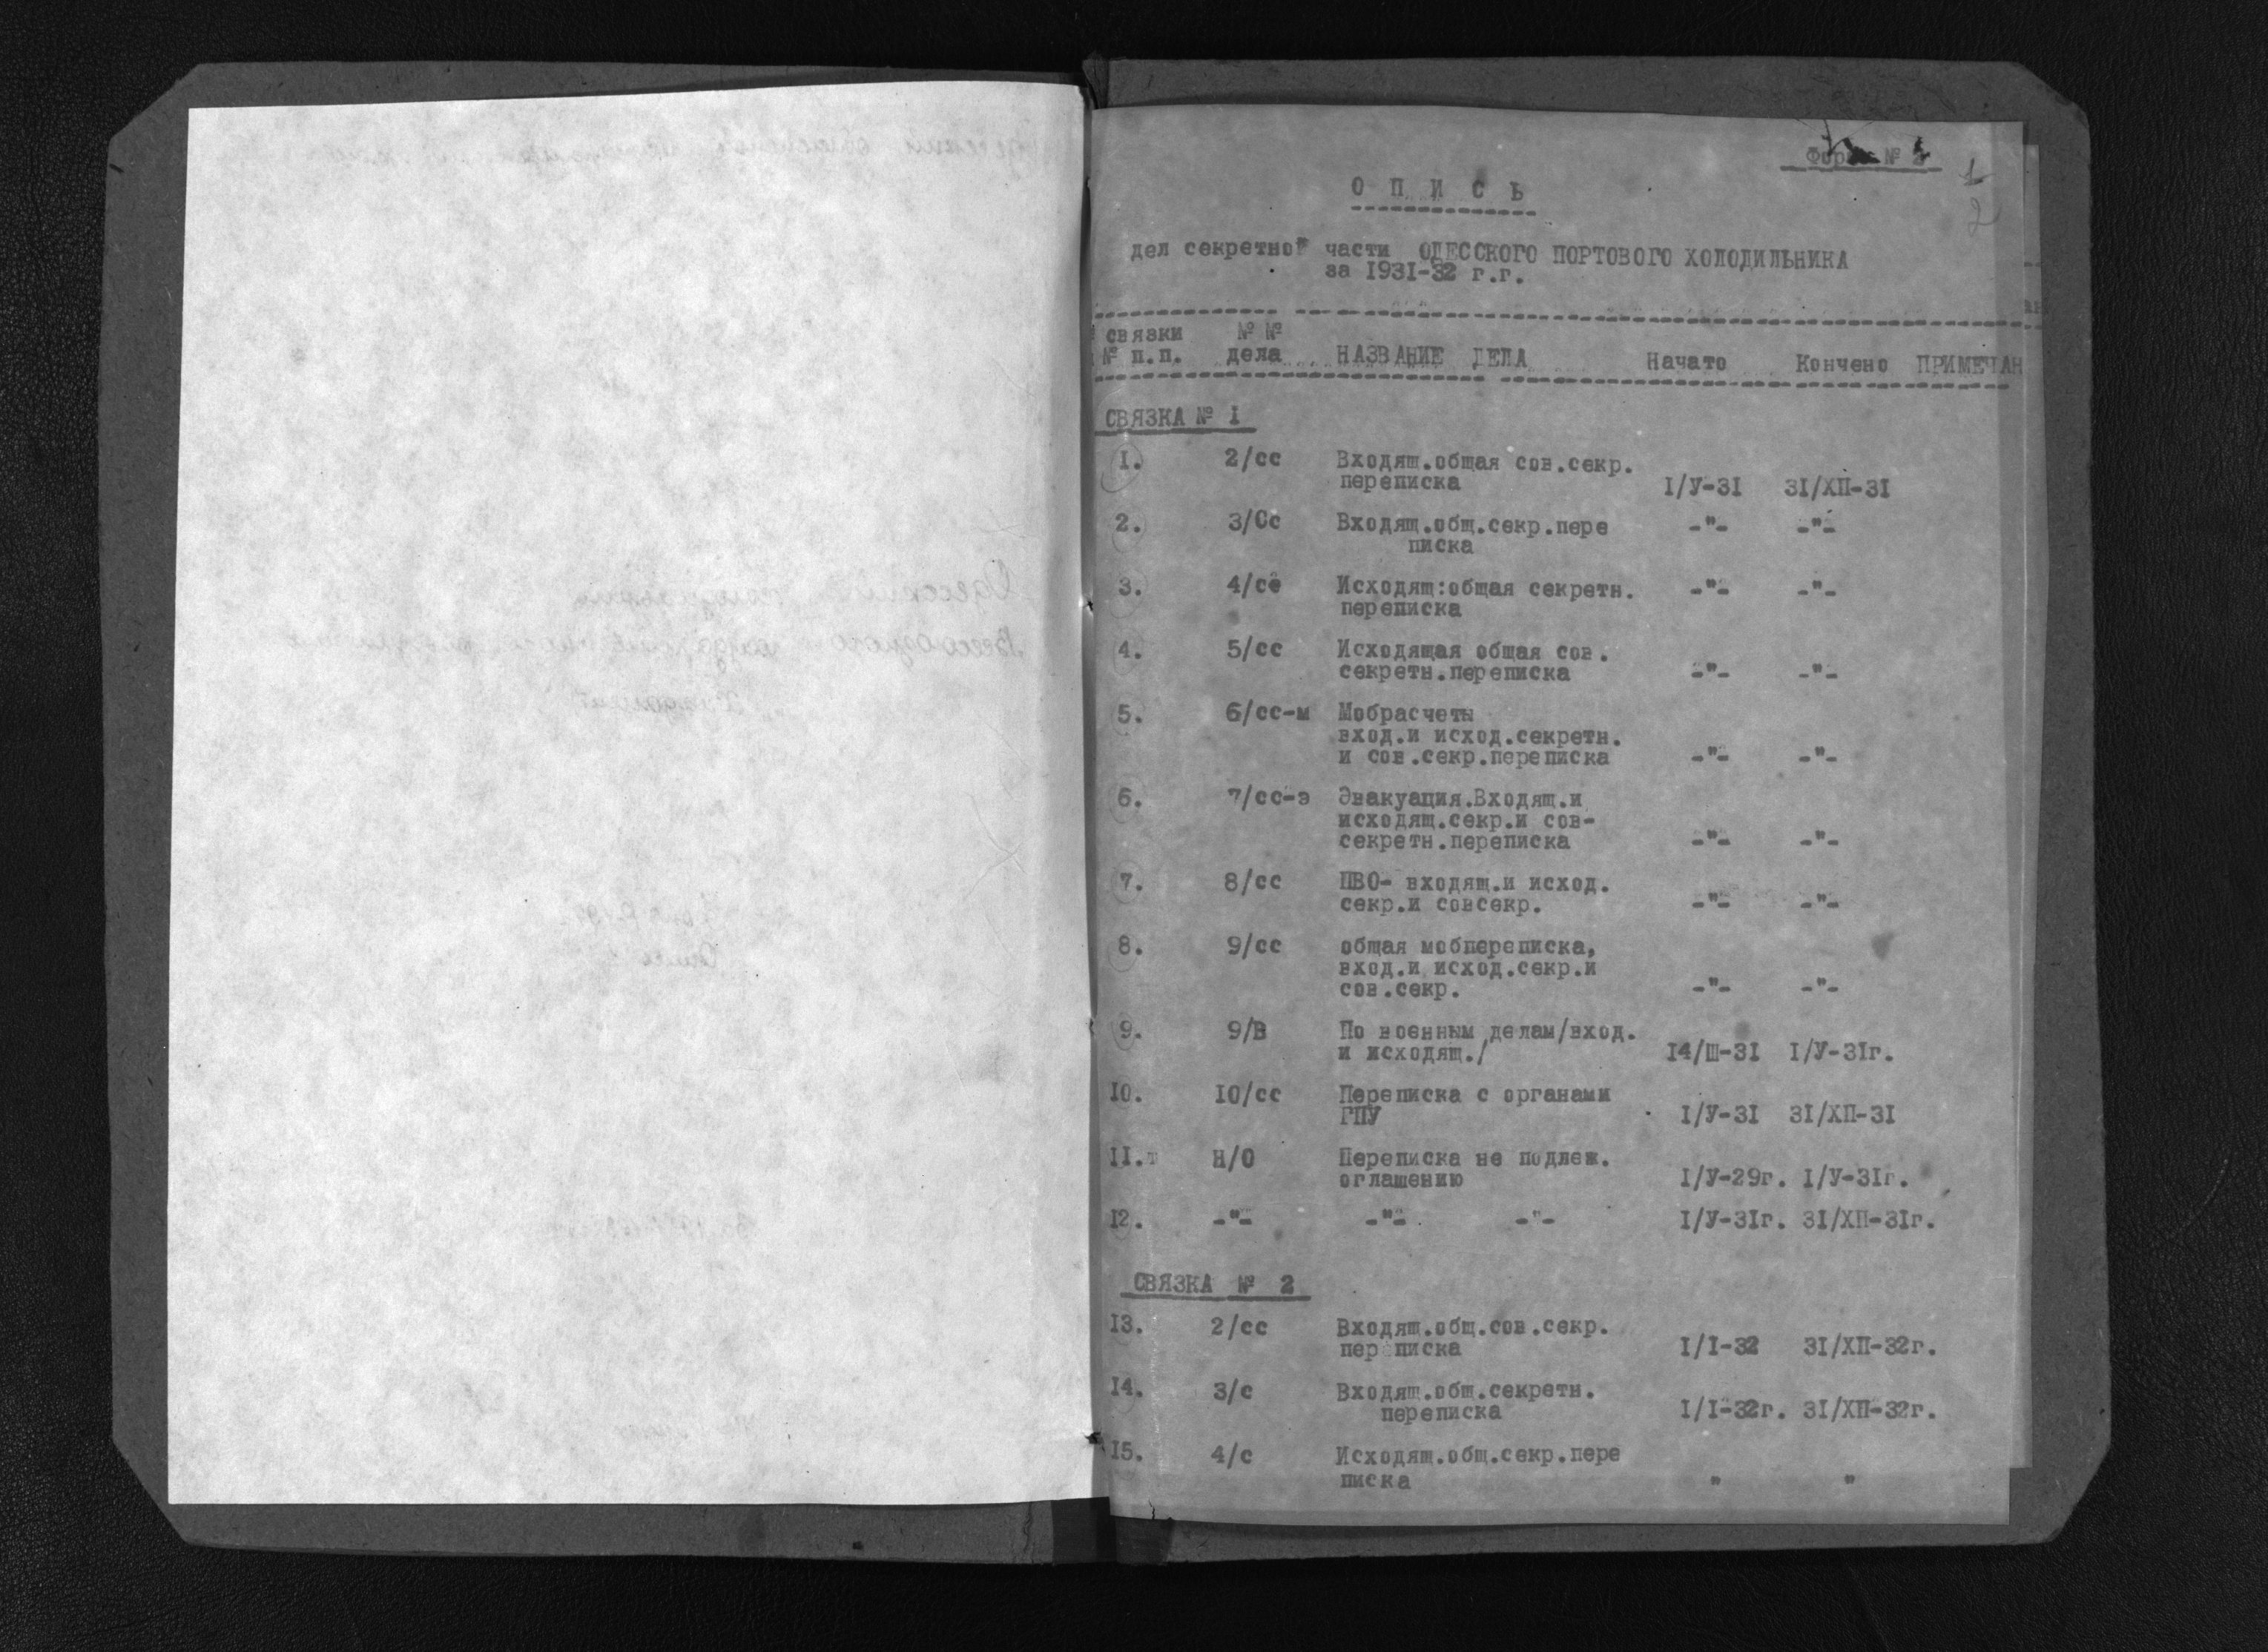 Форма № 2
1
2
О П И С Ь
дел секретной части ОДЕССКОГО ПОРТОВОГО ХОЛОДИЛЬНИКА
за 1931-32 г.г.
связки №№
№ п.п. дела НАЗВАНИЕ ДЕЛА Начато Кончено ПРИМЕЧАН
СВЯЗКА № I
I. 2/сс Входящ.общая сов.секр.
переписка I/У-3I 3I/ХП-3I
2. 3/Сс Входящ.общ.секр.пере -"- -"-
писка
3. 4/сс Исходящ:общая секретн. -"- -"-
переписка
4. 5/сс Исходящая общая сов.
секретн.переписка -"- -"-
5. 6/сс-м Мобрасчеты
вход.и исход.секретн.
и сов.секр.переписка -"- -"-
6. 7/сс-э Эвакуация.Входящ.и
исходящ.секр.и сов-
секретн.переписка -"- -"-
7. 8/сс ПВО- входящ.и исход.
секр.и совсекр. -"- -"-
8. 9/сс общая мобпереписка,
вход.и исход.секр.и
сов.секр. -"- -"-
9. 9/В По военным делам/вход.
и исходящ./ I4/Ш-3I I/У-3Iг.
I0. I0/сс Переписка с органами
ГПУ I/У-3I 3I/ХП-3I
II. Н/О Переписка не подлеж.
оглашению I/У-29г. I/У-3Iг.
I2. -"- -"- -"- I/У-3Iг. 3I/ХП-3Iг.
СВЯЗКА № 2
I3. 2/сс Входящ.общ.сов.секр.
переписка I/I-32 3I/ХП-32г.
I4. 3/с Входящ.общ.секретн.
переписка I/I-32г. 3I/ХП-32г.
I5. 4/с Исходящ.общ.секр.пере
писка " "